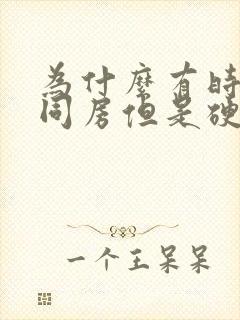 為什麼有時
同房但是硬
一个王呆呆